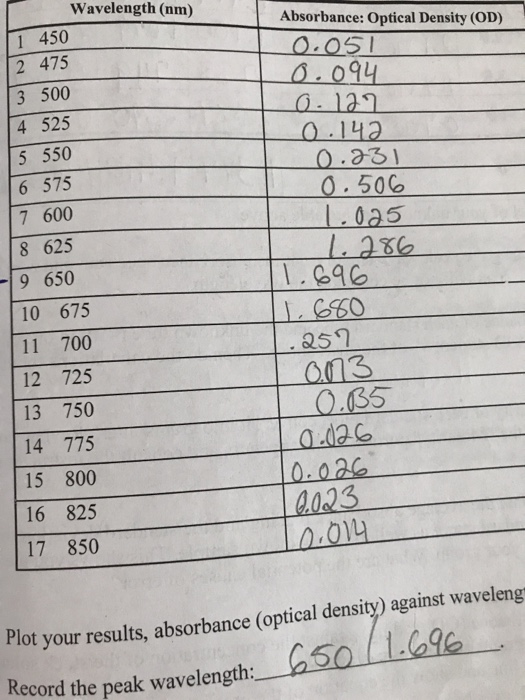 Wavelength (nm) Absorbance: Optical Density (OD)
1 450 0.051
2 475 0.094
3 500 0.127
4 525 0.142
5 550 0.231
6 575 0.506
7 600 1.025
8 625 1.286
9 650 1.696
10 675 1.680
11 700 .257
12 725 0.073
13 750 0.035
14 775 0.026
15 800 0.026
16 825 0.023
17 850 0.014
Plot your results, absorbance (optical density) against waveleng
Record the peak wavelength: 650 / 1.696